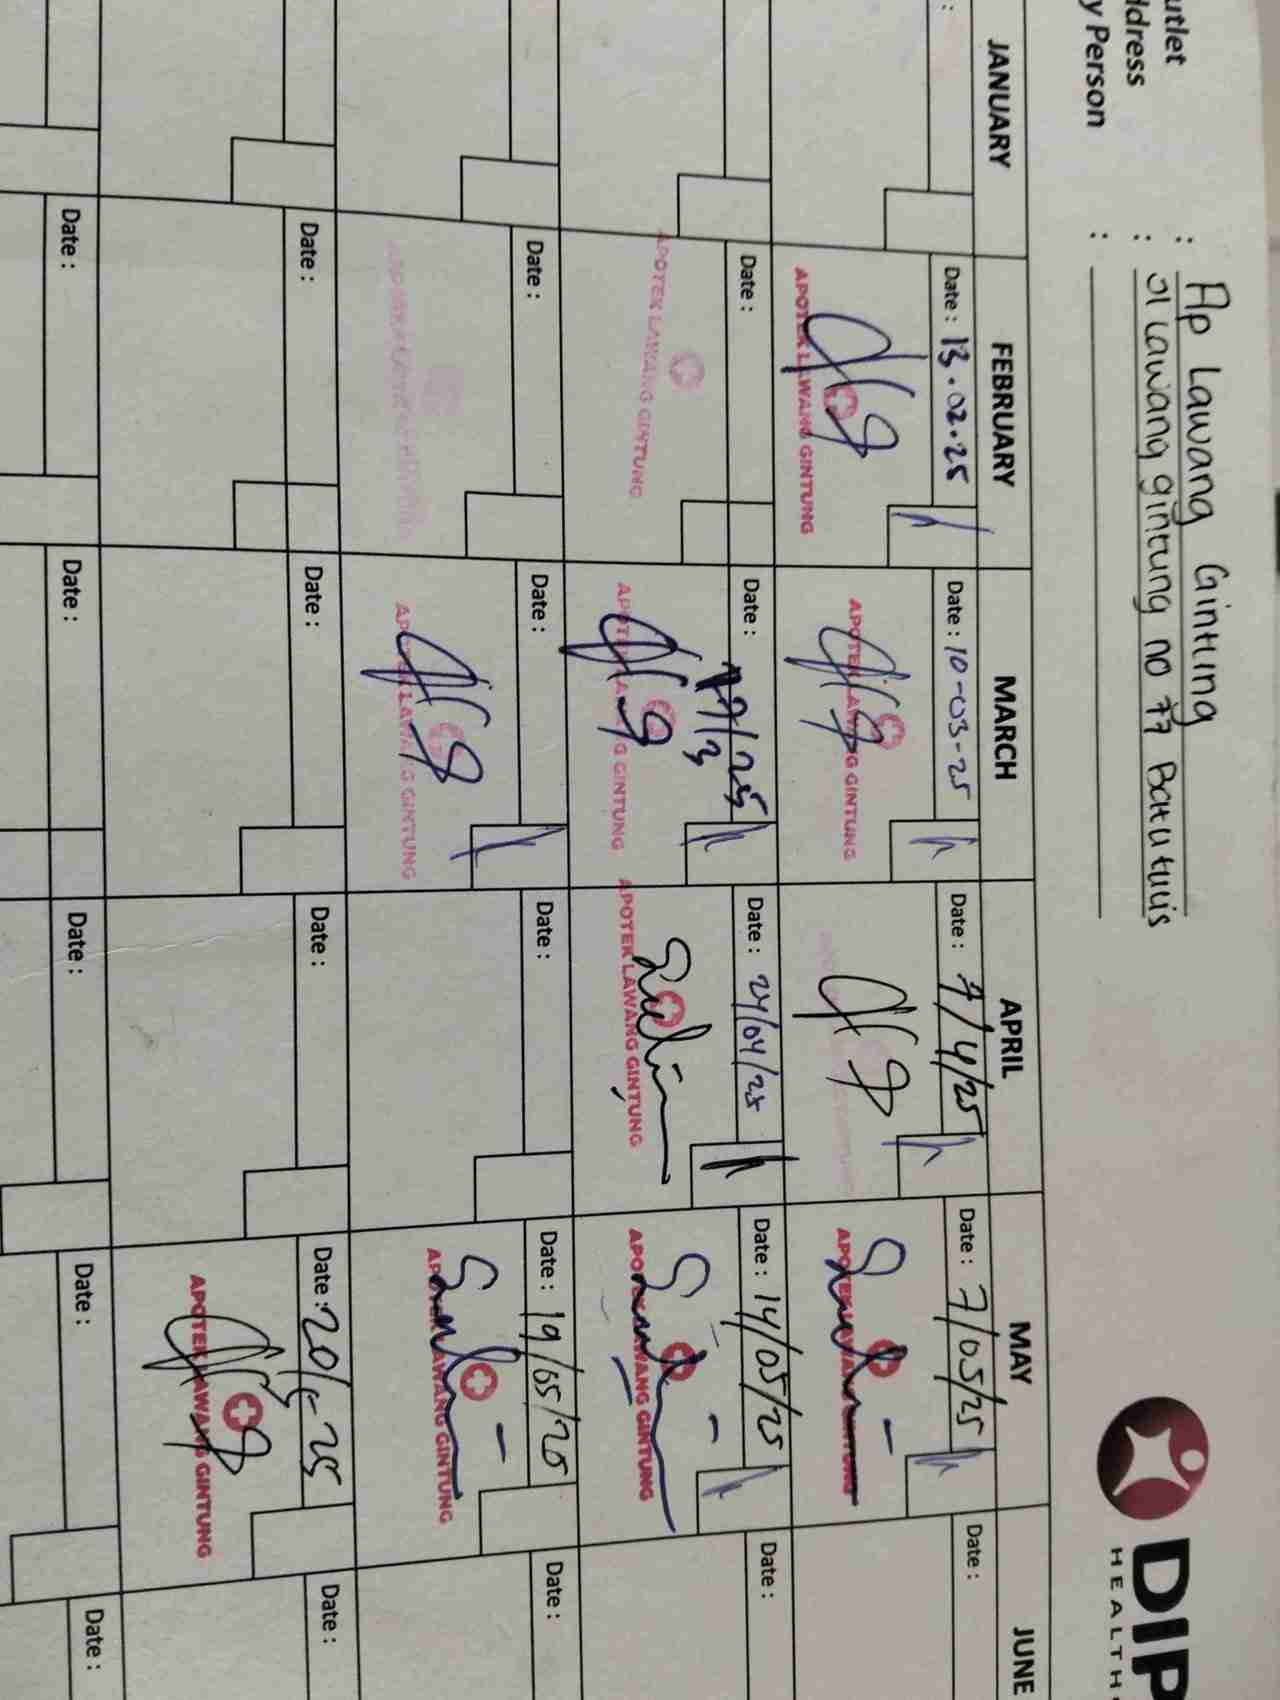 utlet : Ap Lawang Gintung
ddress : Jl Lawang gintung no 77 Batutulis
y Person :
DIP
HEALTH
JANUARY FEBRUARY MARCH APRIL MAY JUNE
: Date : 13.02.25 Date : 10-03-25 Date : 7/4/25 Date : 7/05/25 Date :
APOTEK LAWANG GINTUNG APOTEK LAWANG GINTUNG APOTEK LAWANG GINTUNG
Date : Date : Date : 24/04/25 Date : 14/05/25 Date :
APOTEK LAWANG GINTUNG APOTEK LAWANG GINTUNG APOTEK LAWANG GINTUNG APOTEK LAWANG GINTUNG
Date : Date : Date : Date : 19/05/25 Date :
APOTEK LAWANG GINTUNG APOTEK LAWANG GINTUNG
Date : Date : Date : Date : 20/5-25 Date :
APOTEK LAWANG GINTUNG
Date : Date : Date : Date : Date :